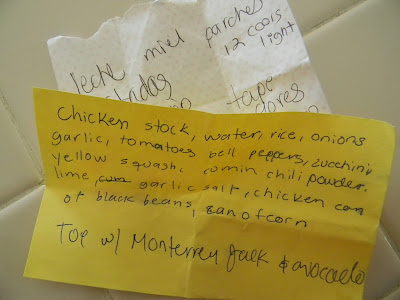 leche miel parches 12 coors light
tape
Chicken stock, water, rice, onions
garlic, tomatoes bell peppers, zucchini
yellow squash, cumin chili powder,
lime, garlic salt, chicken can
of black beans, can of corn
Top w/ Monterrey Jalk & avocado